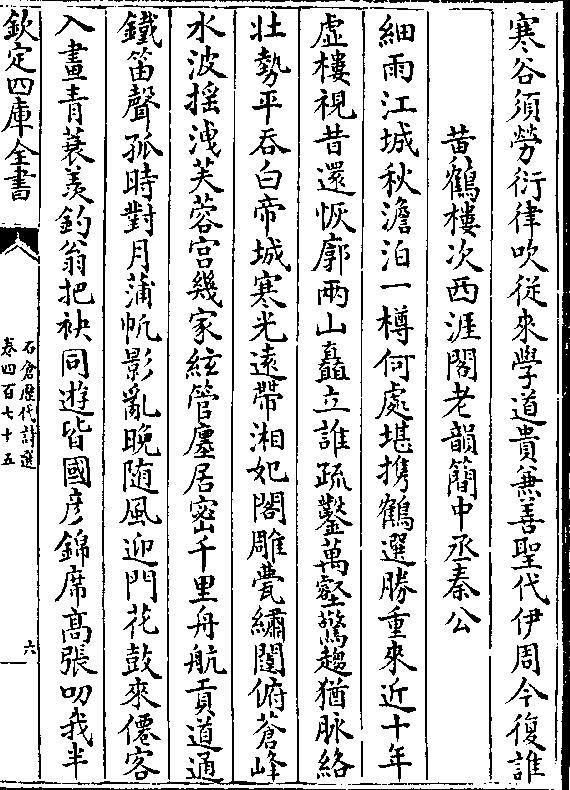 寒谷須勞衍律吹從來學道貴兼善聖代伊周今復誰
黄鶴樓次西涯閣老韻簡中丞秦公
細雨江城秋澹泊一樽何處堪携鶴選勝重來近十年
虛樓視昔還恢廓兩山矗立誰疏鑿萬壑驚趨猶脉絡
壯勢平吞白帝城寒光遠帶湘妃閣雕甍繡闥俯蒼峰
水波揺洩芙蓉宫幾家絃管廛居密千里舟航貢道通
鐵笛聲孤時對月蒲帆影亂晚随風迎門花鼓來僊客
入畫青蓑羡釣翁把袂同遊皆國彦錦席髙張叨我半
欽定四庫全書
石倉歴代詩選
卷四百七十五
六